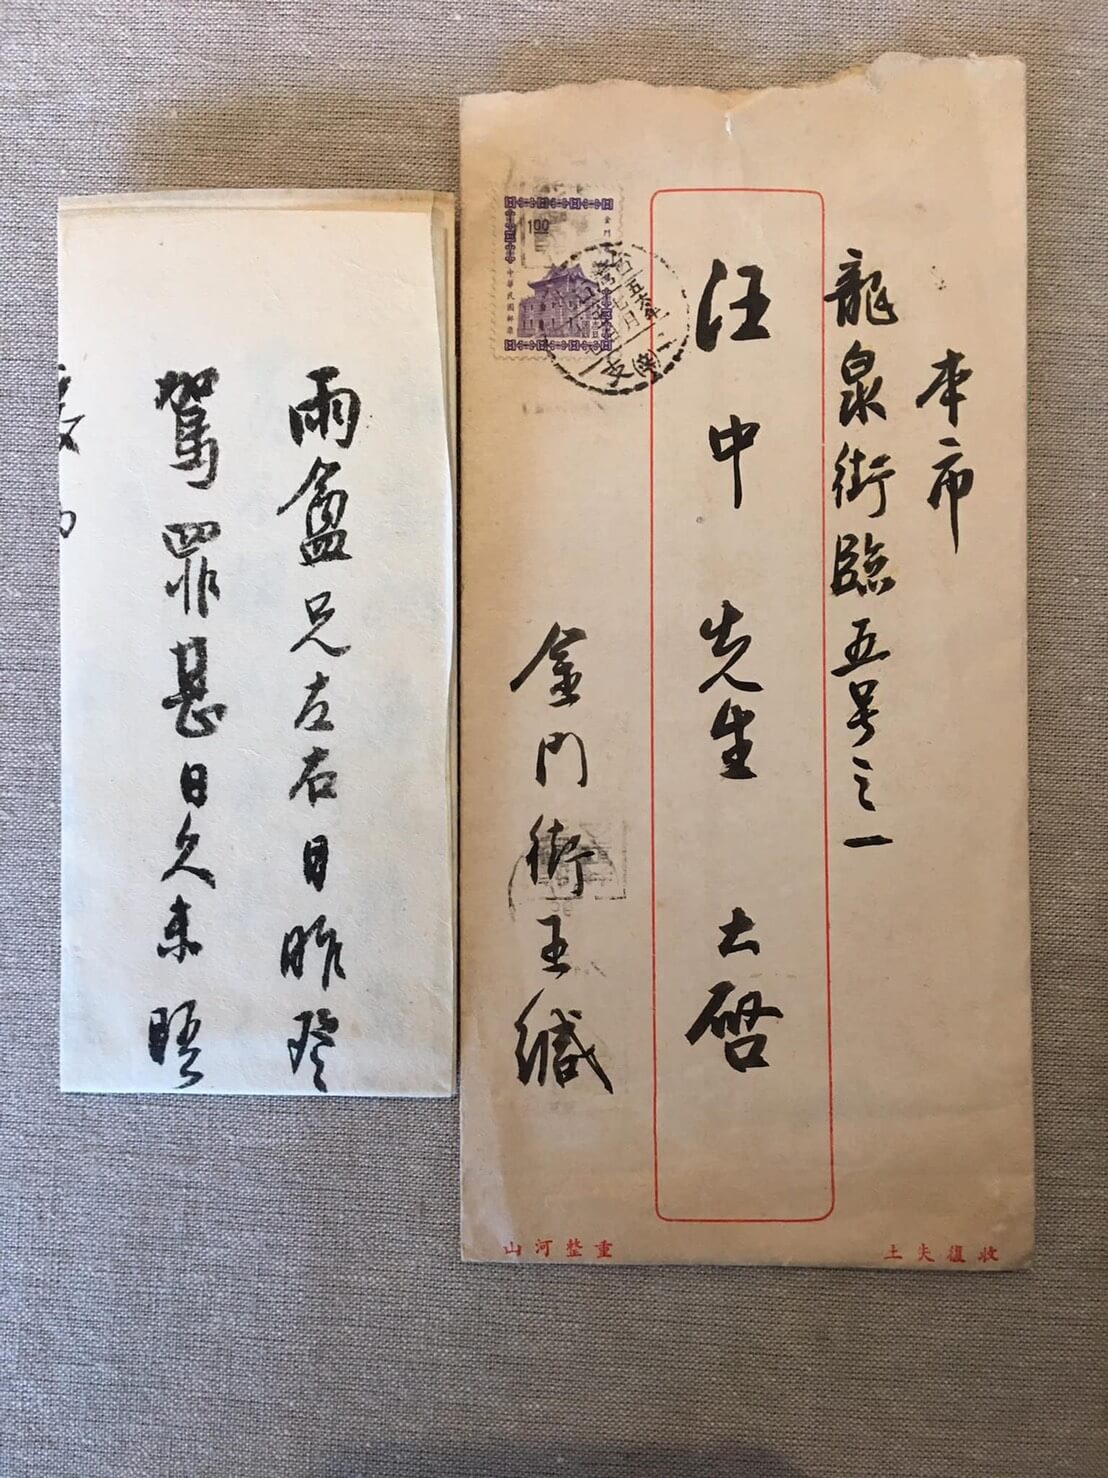 本市
龍泉街臨五号之一
汪中先生 大啓
金門街王緘
1.00
中華民國郵票
收復失土
重整河山
雨盦兄左右日昨癸
駕罪甚日久未晤